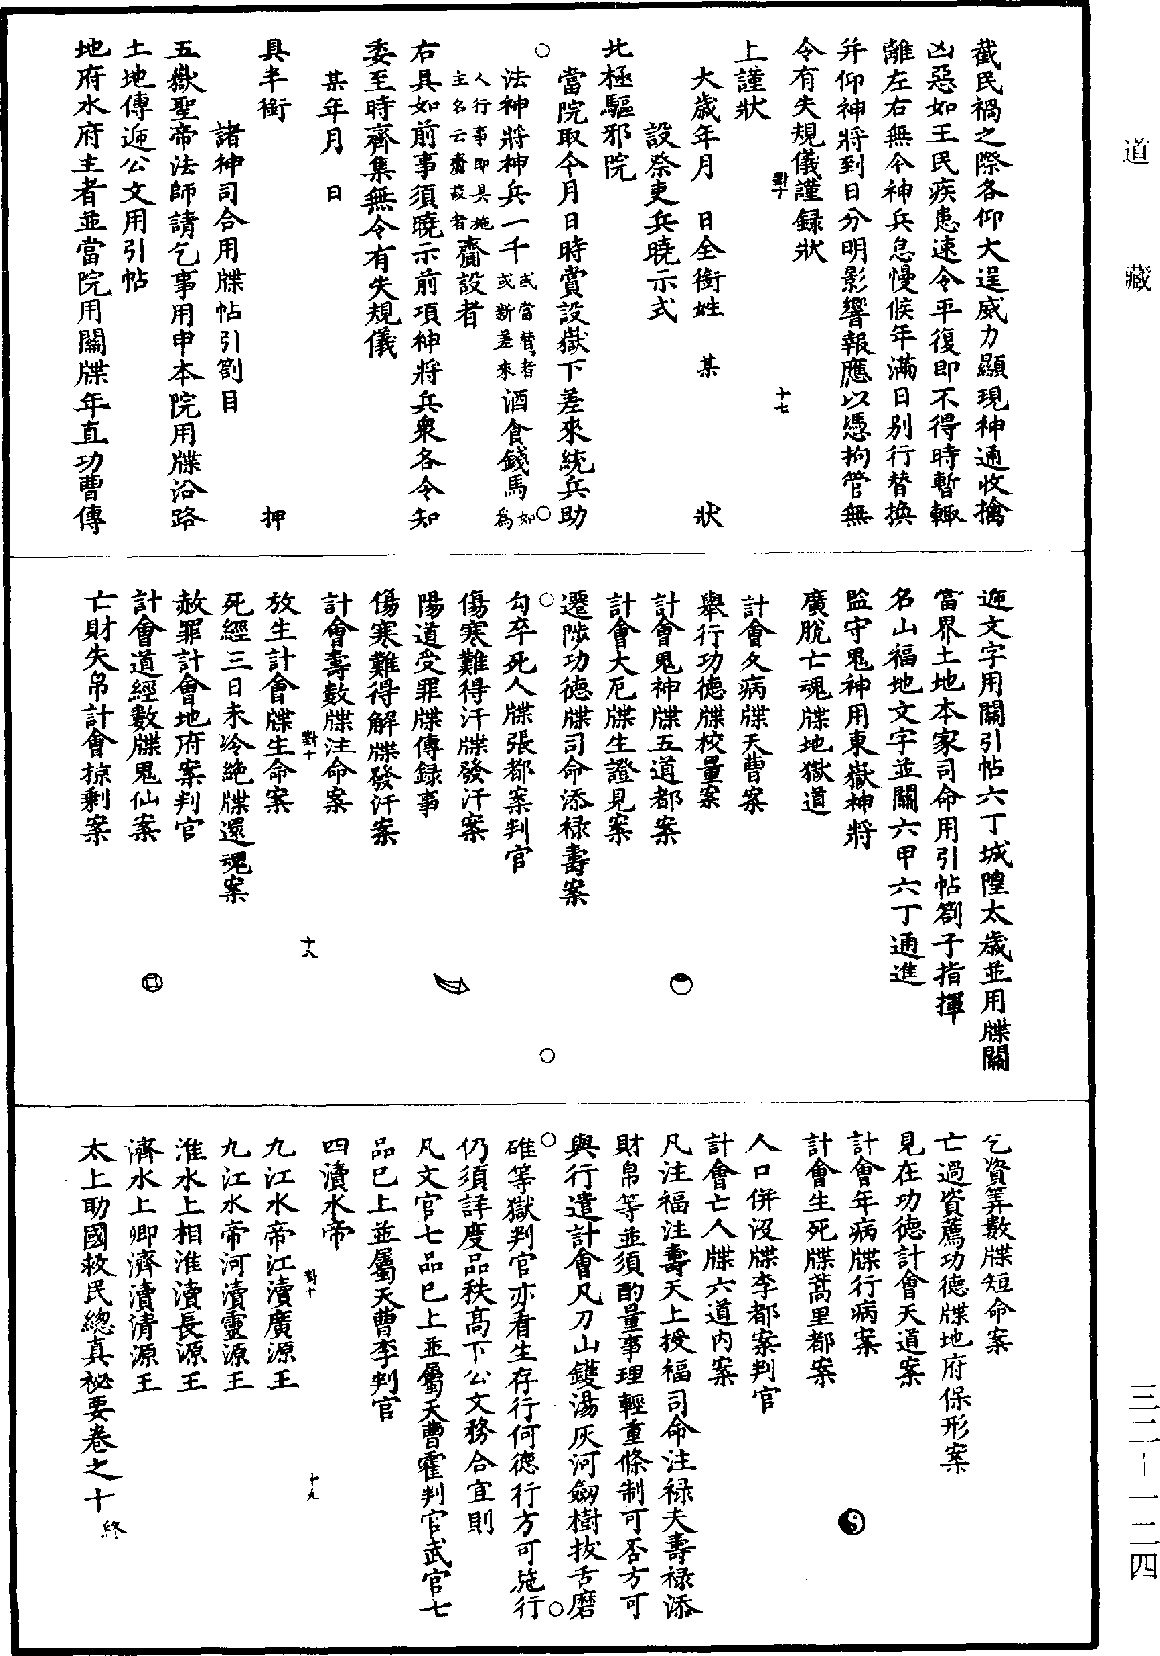 道藏
三二—一二四
截民禍之際各仰大逞威力顯現神通收擒
凶惡如王民疾患速令平復即不得時暫輙
離左右無令神兵怠慢候年滿日别行替換
并仰神將到日分明影響報應以憑拘管無
令有失規儀謹録狀
對十 十七
上謹狀
大歲年月 日全銜姓 某 狀
設祭吏兵曉示式
北極驅邪院
當院取今月日時賞設嶽下差來統兵助
法神將神兵一千或當替者或新差來酒食錢馬如爲
人行事即具施主名云齋設者齋設者
右具如前事須曉示前項神將兵衆各令知
委至時齊集無令有失規儀
某年月 日
具半銜 押
諸神司合用牒帖引劄目
五嶽聖帝法師請乞事用申本院用牒沿路
土地傳遞公文用引帖
地府水府主者並當院用關牒年直功曹傳
遞文字用關引帖六丁城隍太歲並用牒關
當界土地本家司命用引帖劄子指揮
名山福地文字並關六甲六丁通進
監守鬼神用東嶽神將
廣脫亡魂牒地獄道
計會久病牒天曹案
舉行功德牒校量案
計會鬼神牒五道都案
計會大厄牒生證見案
遷陟功德牒司命添禄壽案
勾卒死人牒張都案判官
傷寒難得汗牒發汗案
陽道受罪牒傳録事
傷寒難得解牒發汗案
計會壽數牒注命案
對十 十八
放生計會牒生命案
死經三日未冷絶牒還魂案
赦罪計會地府案判官
計會道經數牒鬼仙案
亡財失帛計會掠剩案
乞資筭數牒短命案
亡過資薦功德牒地府保形案
見在功德計會天道案
計會年病牒行病案
計會生死牒蒿里都案
人口併没牒李都案判官
計會亡人牒六道内案
凡注福注壽天上授福司命注禄夫壽禄添
財帛等並須酌量事理輕重條制可否方可
與行遣計會凡刀山鑊湯灰河劒樹拔舌磨
碓等獄判官亦看生存行何德行方可施行
仍須詳度品秩高下公文務合宜則
凡文官七品已上並屬天曹霍判官武官七
品已上並屬天曹李判官
四瀆水帝
對十 十九
九江水帝江瀆廣源王
九江水帝河瀆靈源王
淮水上相淮瀆長源王
濟水上卿濟瀆清源王
太上助國救民總真祕要卷之十 終